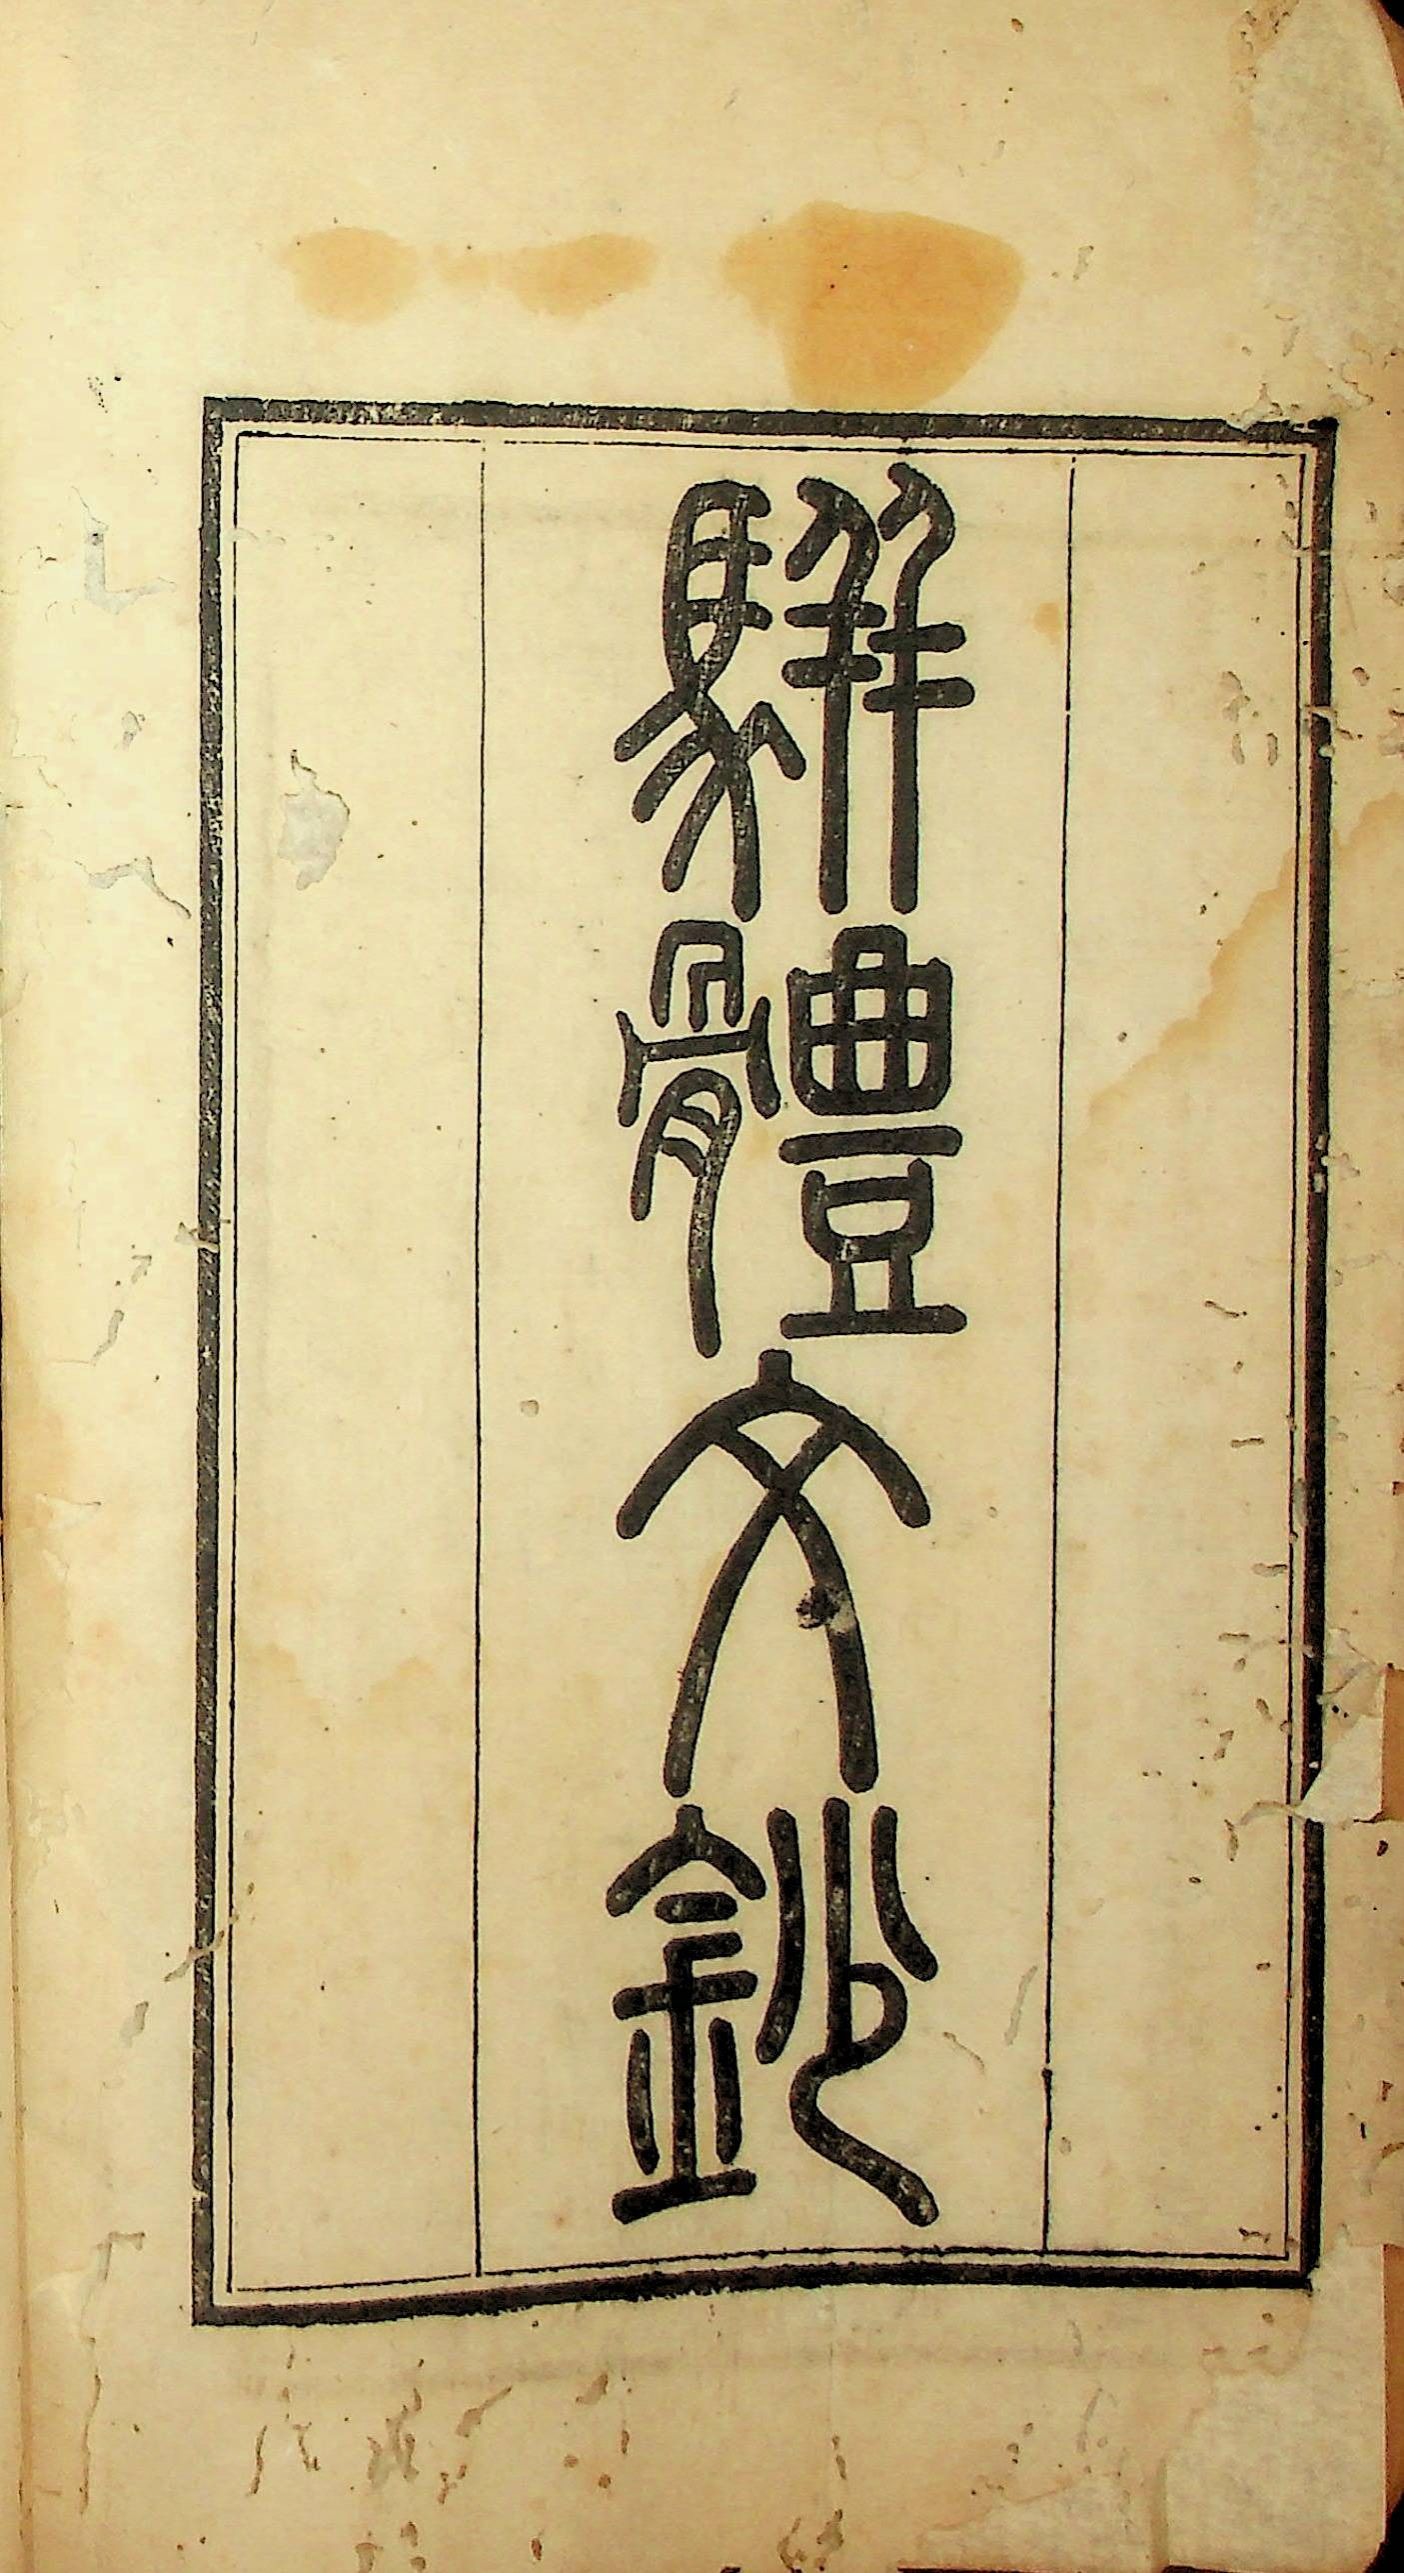 駢體文鈔